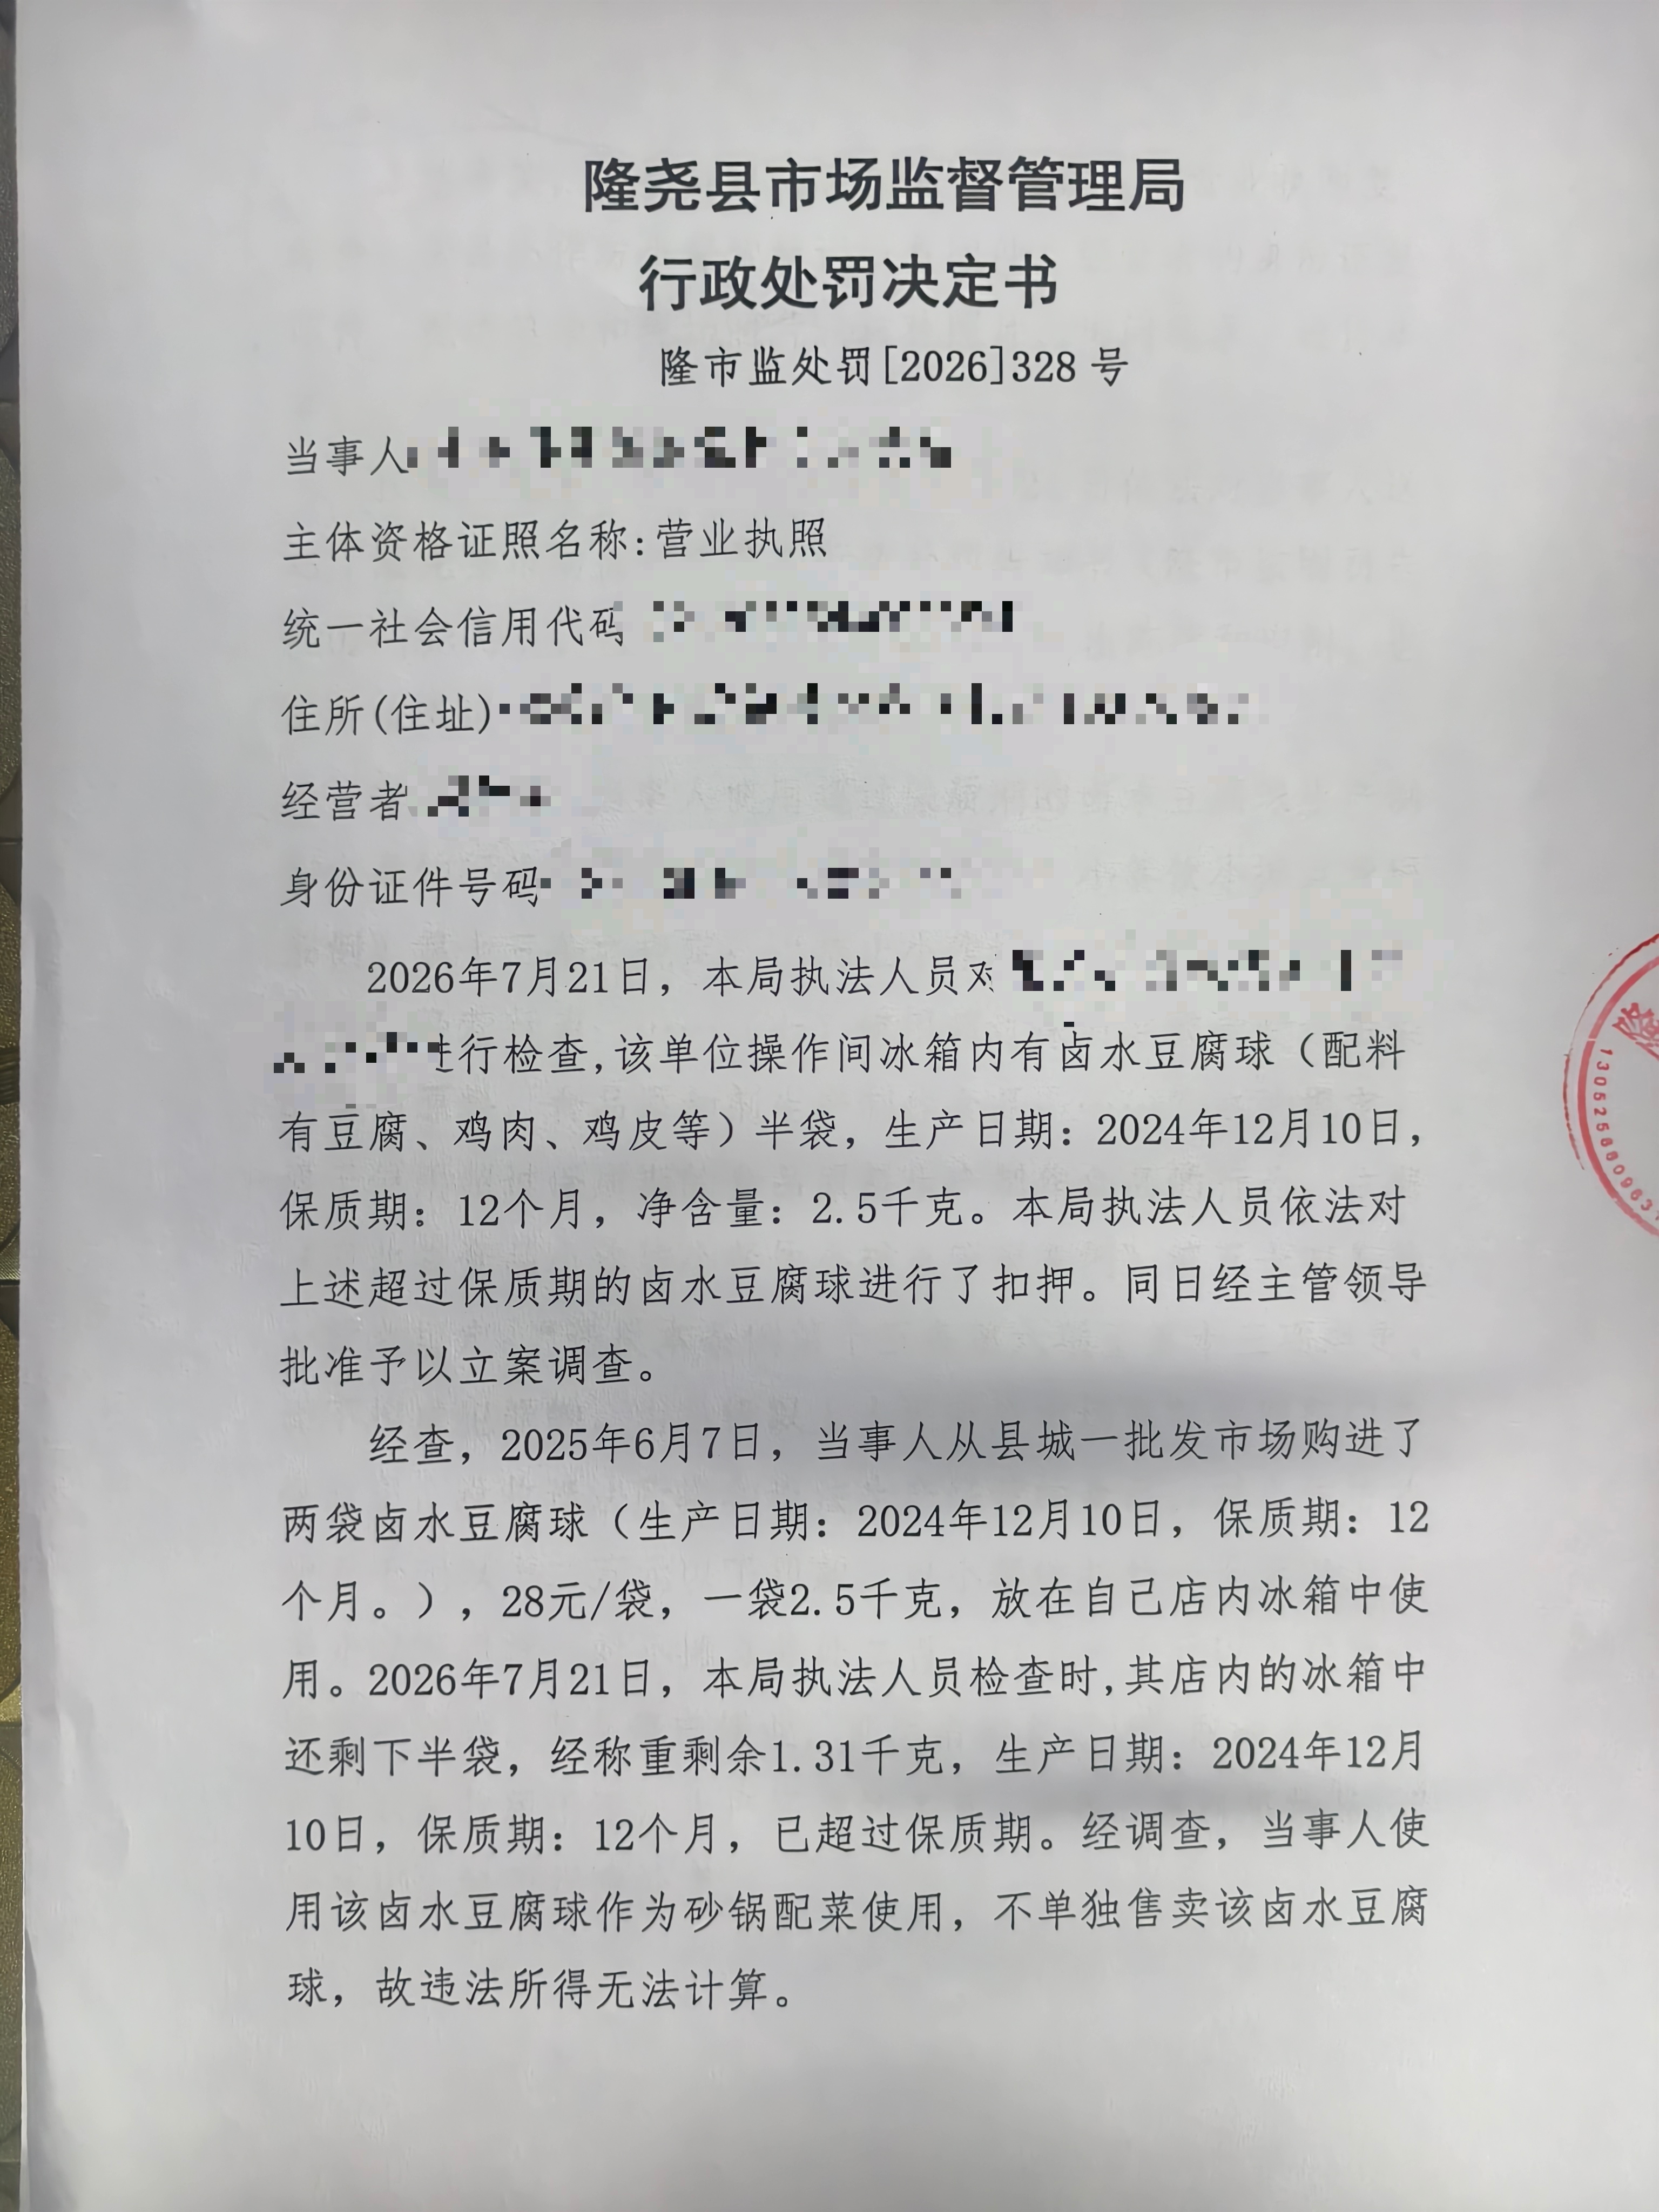 隆尧县市场监督管理局
行政处罚决定书
隆市监处罚[2026]328 号
当事人
主体资格证照名称:营业执照
统一社会信用代码
住所(住址)
经营者
身份证件号码
2026年7月21日，本局执法人员对
进行检查,该单位操作间冰箱内有卤水豆腐球（配料
有豆腐、鸡肉、鸡皮等）半袋，生产日期：2024年12月10日，
保质期：12个月，净含量：2.5千克。本局执法人员依法对
上述超过保质期的卤水豆腐球进行了扣押。同日经主管领导
批准予以立案调查。
经查，2025年6月7日，当事人从县城一批发市场购进了
两袋卤水豆腐球（生产日期：2024年12月10日，保质期：12
个月。），28元/袋，一袋2.5千克，放在自己店内冰箱中使
用。2026年7月21日，本局执法人员检查时,其店内的冰箱中
还剩下半袋，经称重剩余1.31千克，生产日期：2024年12月
10日，保质期：12个月，已超过保质期。经调查，当事人使
用该卤水豆腐球作为砂锅配菜使用，不单独售卖该卤水豆腐
球，故违法所得无法计算。
隆